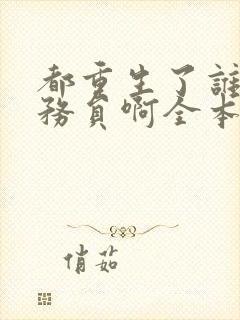 都重生了誰
務員啊全本
俏茹